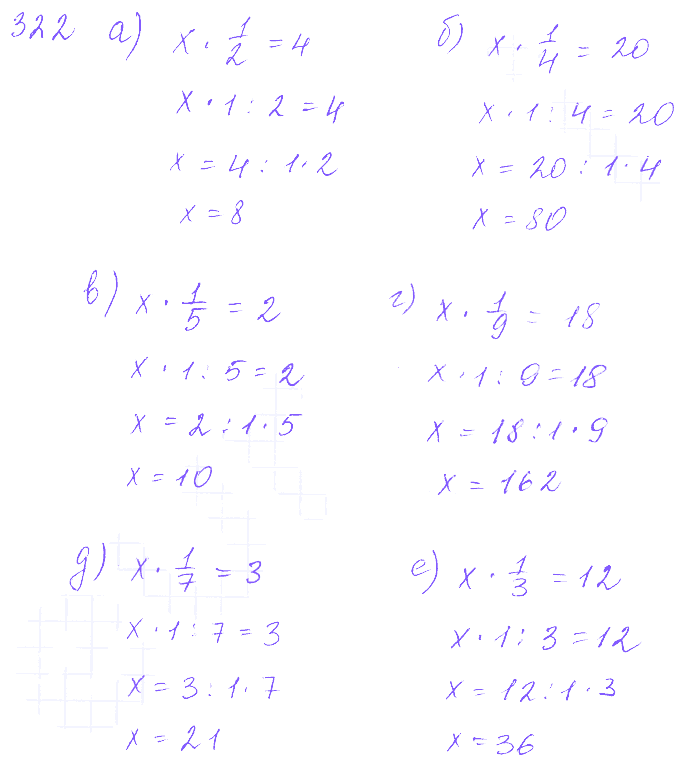 322 а) x · 1/2 = 4
x · 1 : 2 = 4
x = 4 : 1 · 2
x = 8
б) x · 1/4 = 20
x · 1 : 4 = 20
x = 20 : 1 · 4
x = 80
в) x · 1/5 = 2
x · 1 : 5 = 2
x = 2 : 1 · 5
x = 10
г) x · 1/9 = 18
x · 1 : 9 = 18
x = 18 : 1 · 9
x = 162
д) x · 1/7 = 3
x · 1 : 7 = 3
x = 3 : 1 · 7
x = 21
е) x · 1/3 = 12
x · 1 : 3 = 12
x = 12 : 1 · 3
x = 36